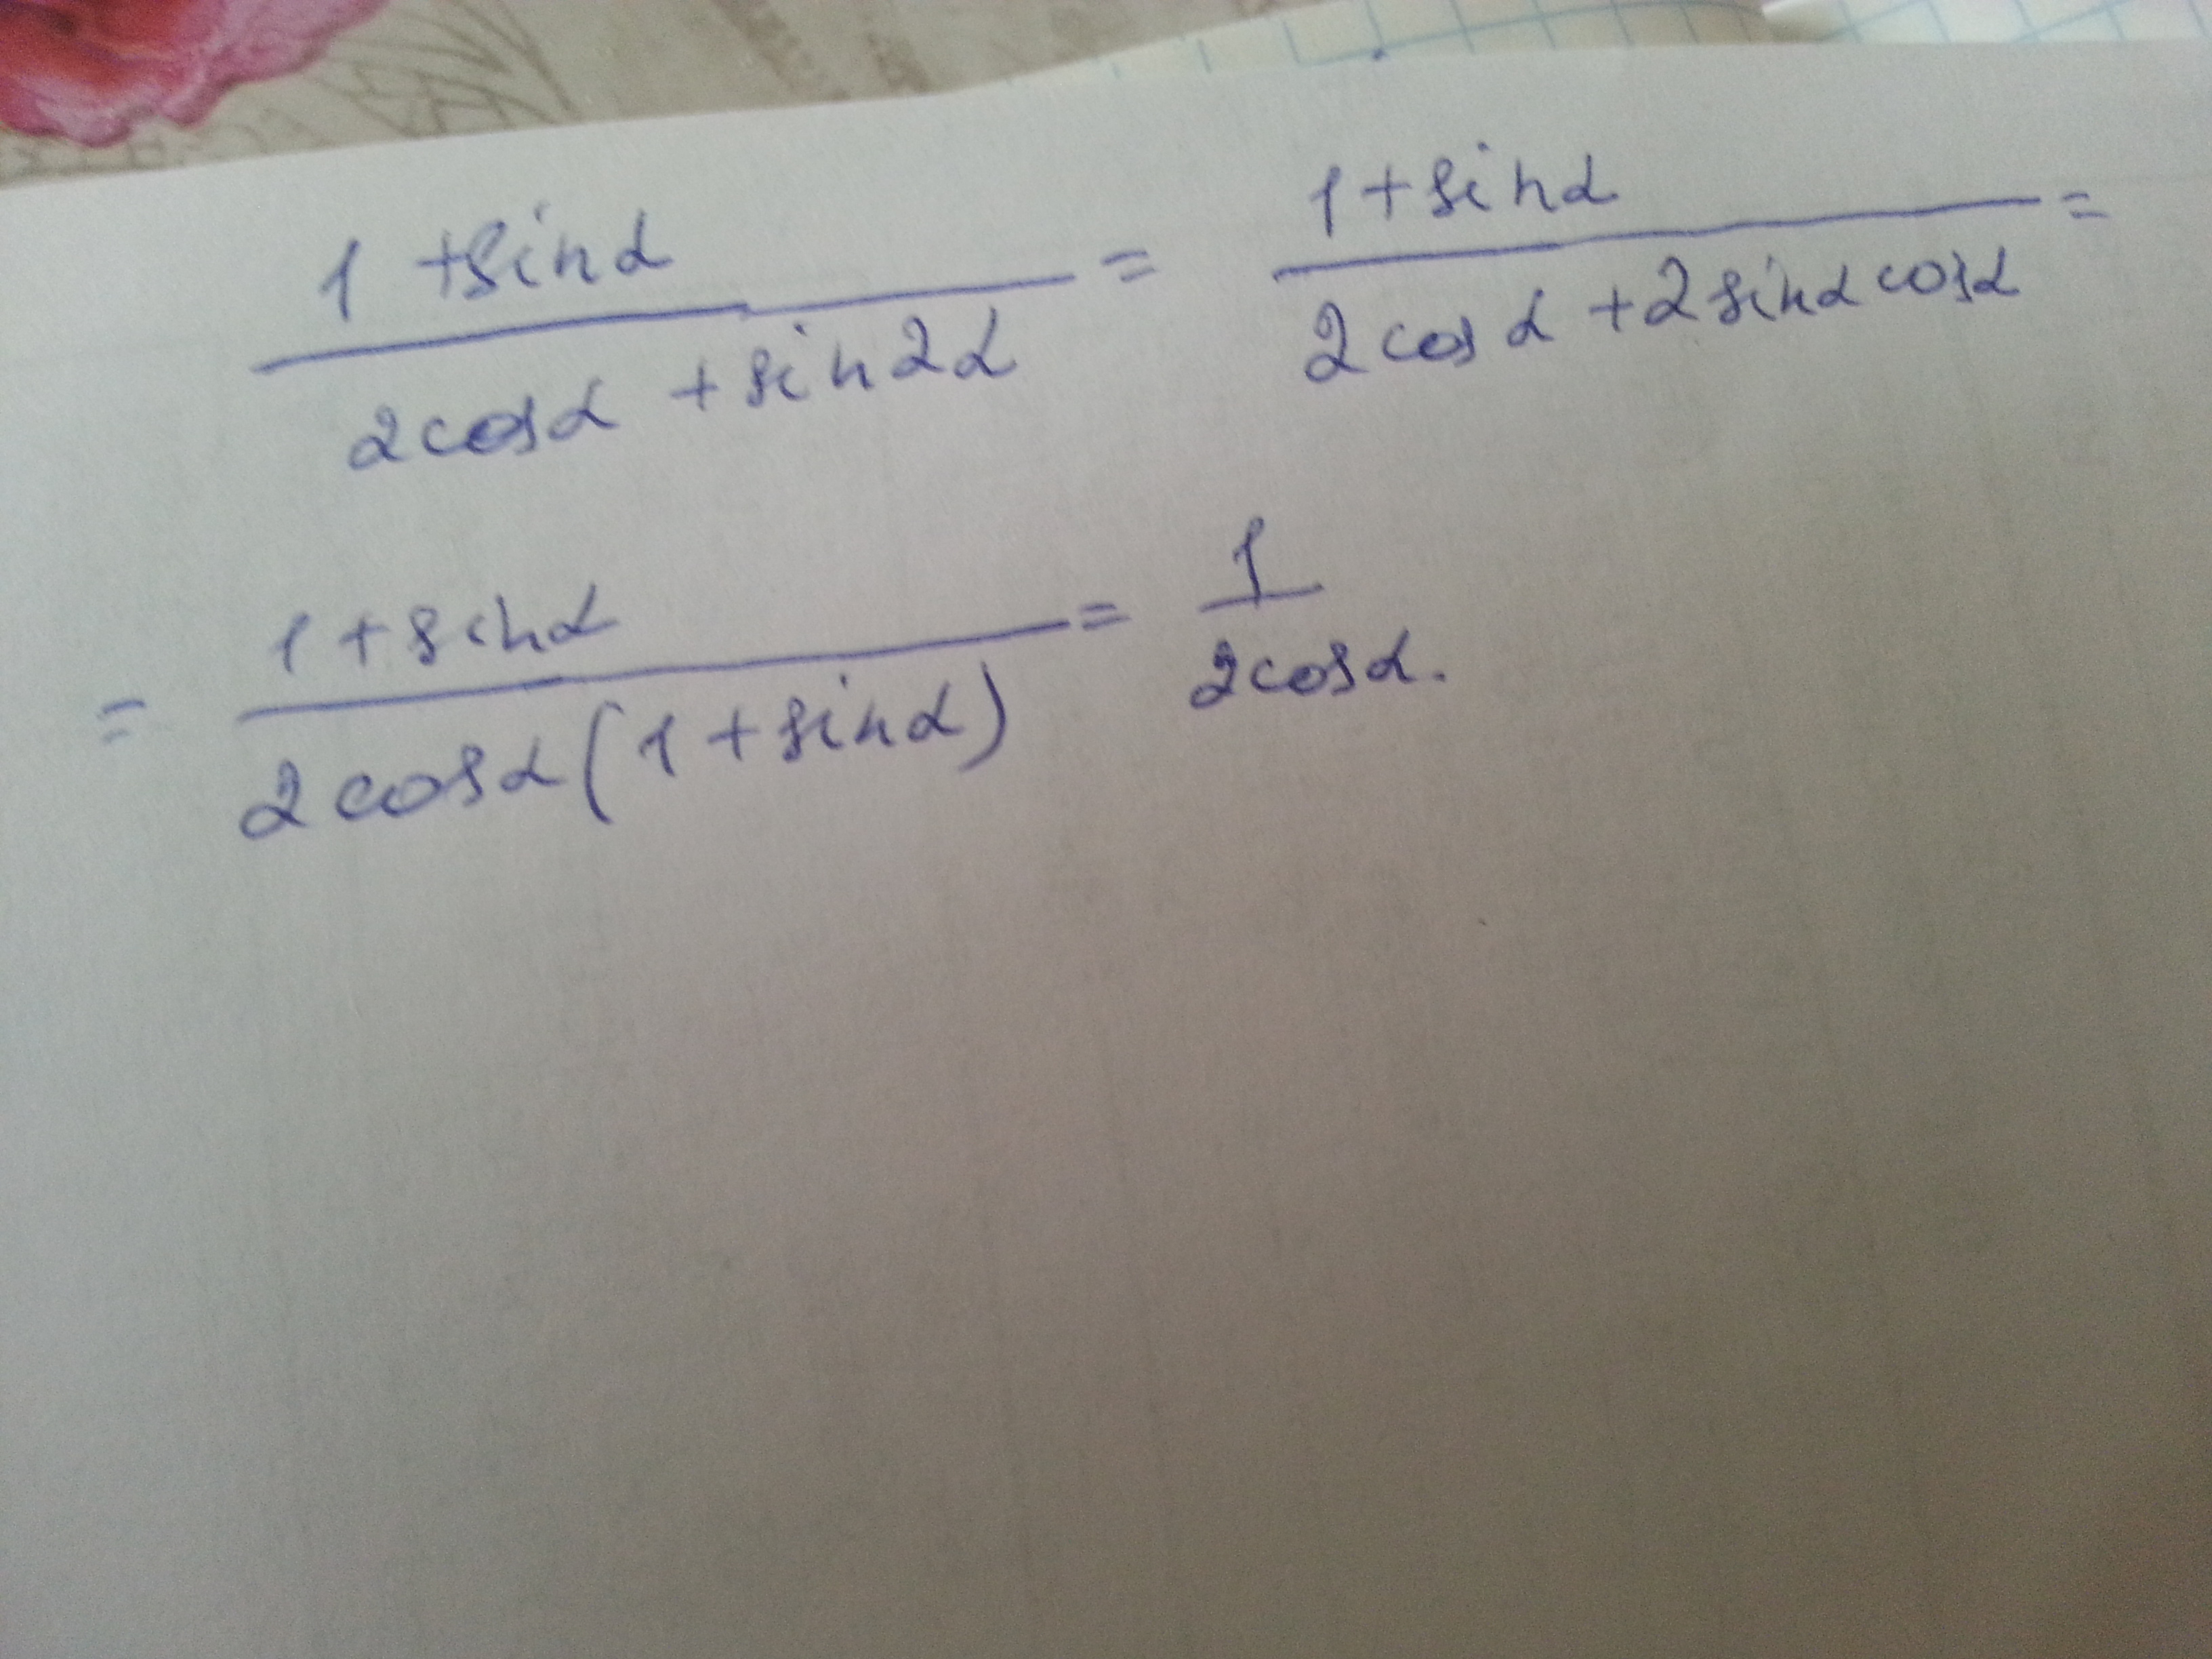 (1 + sin α)/(2 cos α + sin 2α) = (1 + sin α)/(2 cos α + 2 sin α cos α) =
= (1 + sin α)/(2 cos α (1 + sin α)) = 1/(2 cos α).